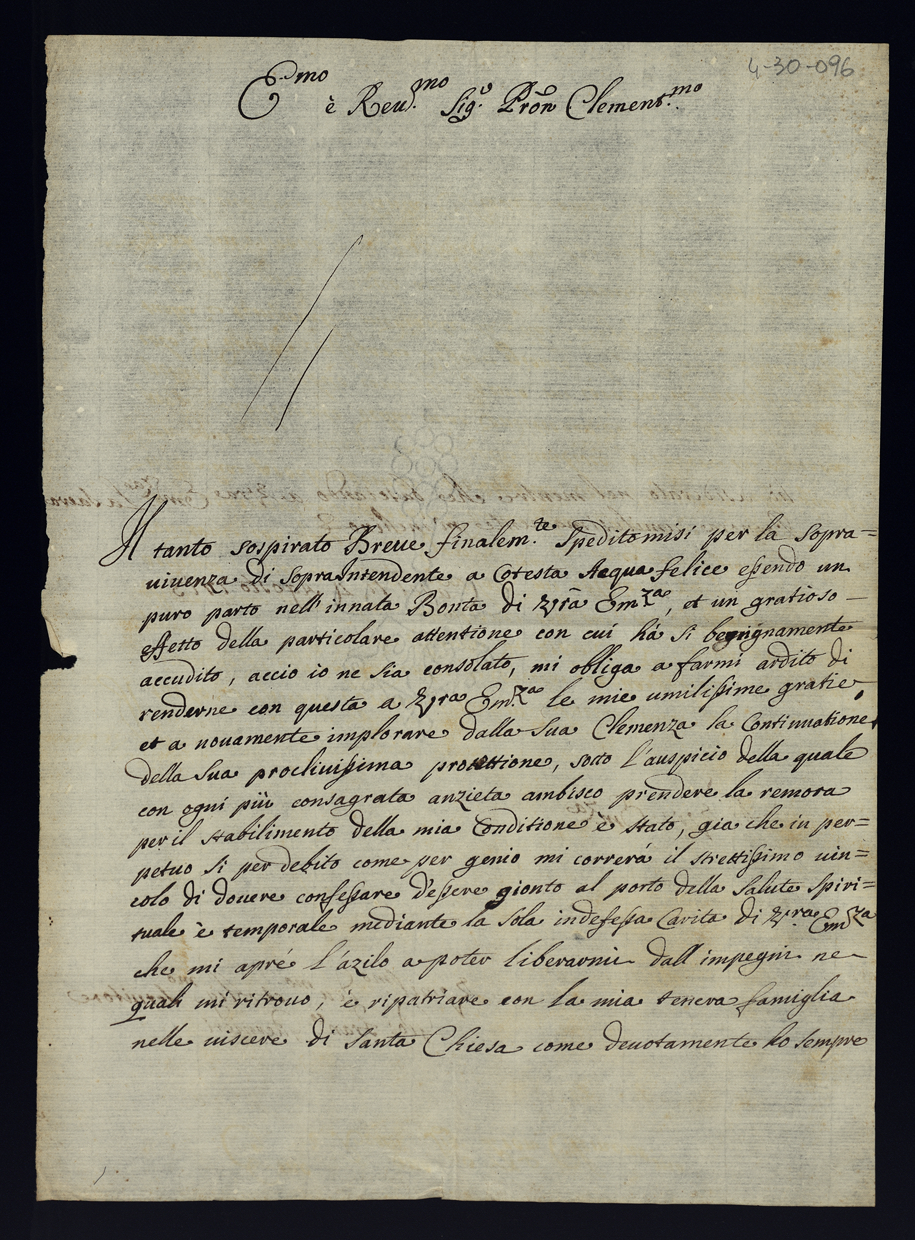 4-30-096
E.mo
è Reu.mo Sig.r Pr̃on Clement.mo
Il tanto sospirato Breue finalem.te speditomisi per la sopra=
uiuenza di SopraIntendente a cotesta Acqua felice essendo un
puro parto nell'innata Bontà di Vr̃a Em.za, et un gratioso
effetto della particolare attentione con cui há si begnignamente
accudito, accio io ne sia consolato, mi obliga a farmi ardito di
renderne con questa a Vr̃a Em.za le mie umilissime gratie,
et a nouamente implorare dalla sua Clemenza la Continuatione
della sua procliuissima protettione, sotto l'auspicio della quale
con ogni più consagrata anzieta ambisco prendere la remora
per il stabilimento della mia Conditione è stato, gia che in per=
petuo si per debito come per genio mi correrá il strettissimo uin=
colo di douere confessare d'essere gionto al porto della Salute Spiri=
tuale è temporale mediante la sola indefessa Carita di Vr̃a Em.za
che mi apré l'azilo a poter liberarmi dall'impegni ne
quali mi ritrouo, è ripatriare con la mia tenera famiglia
nelle uiscere di Santa Chiesa come deuotamente ho sempre